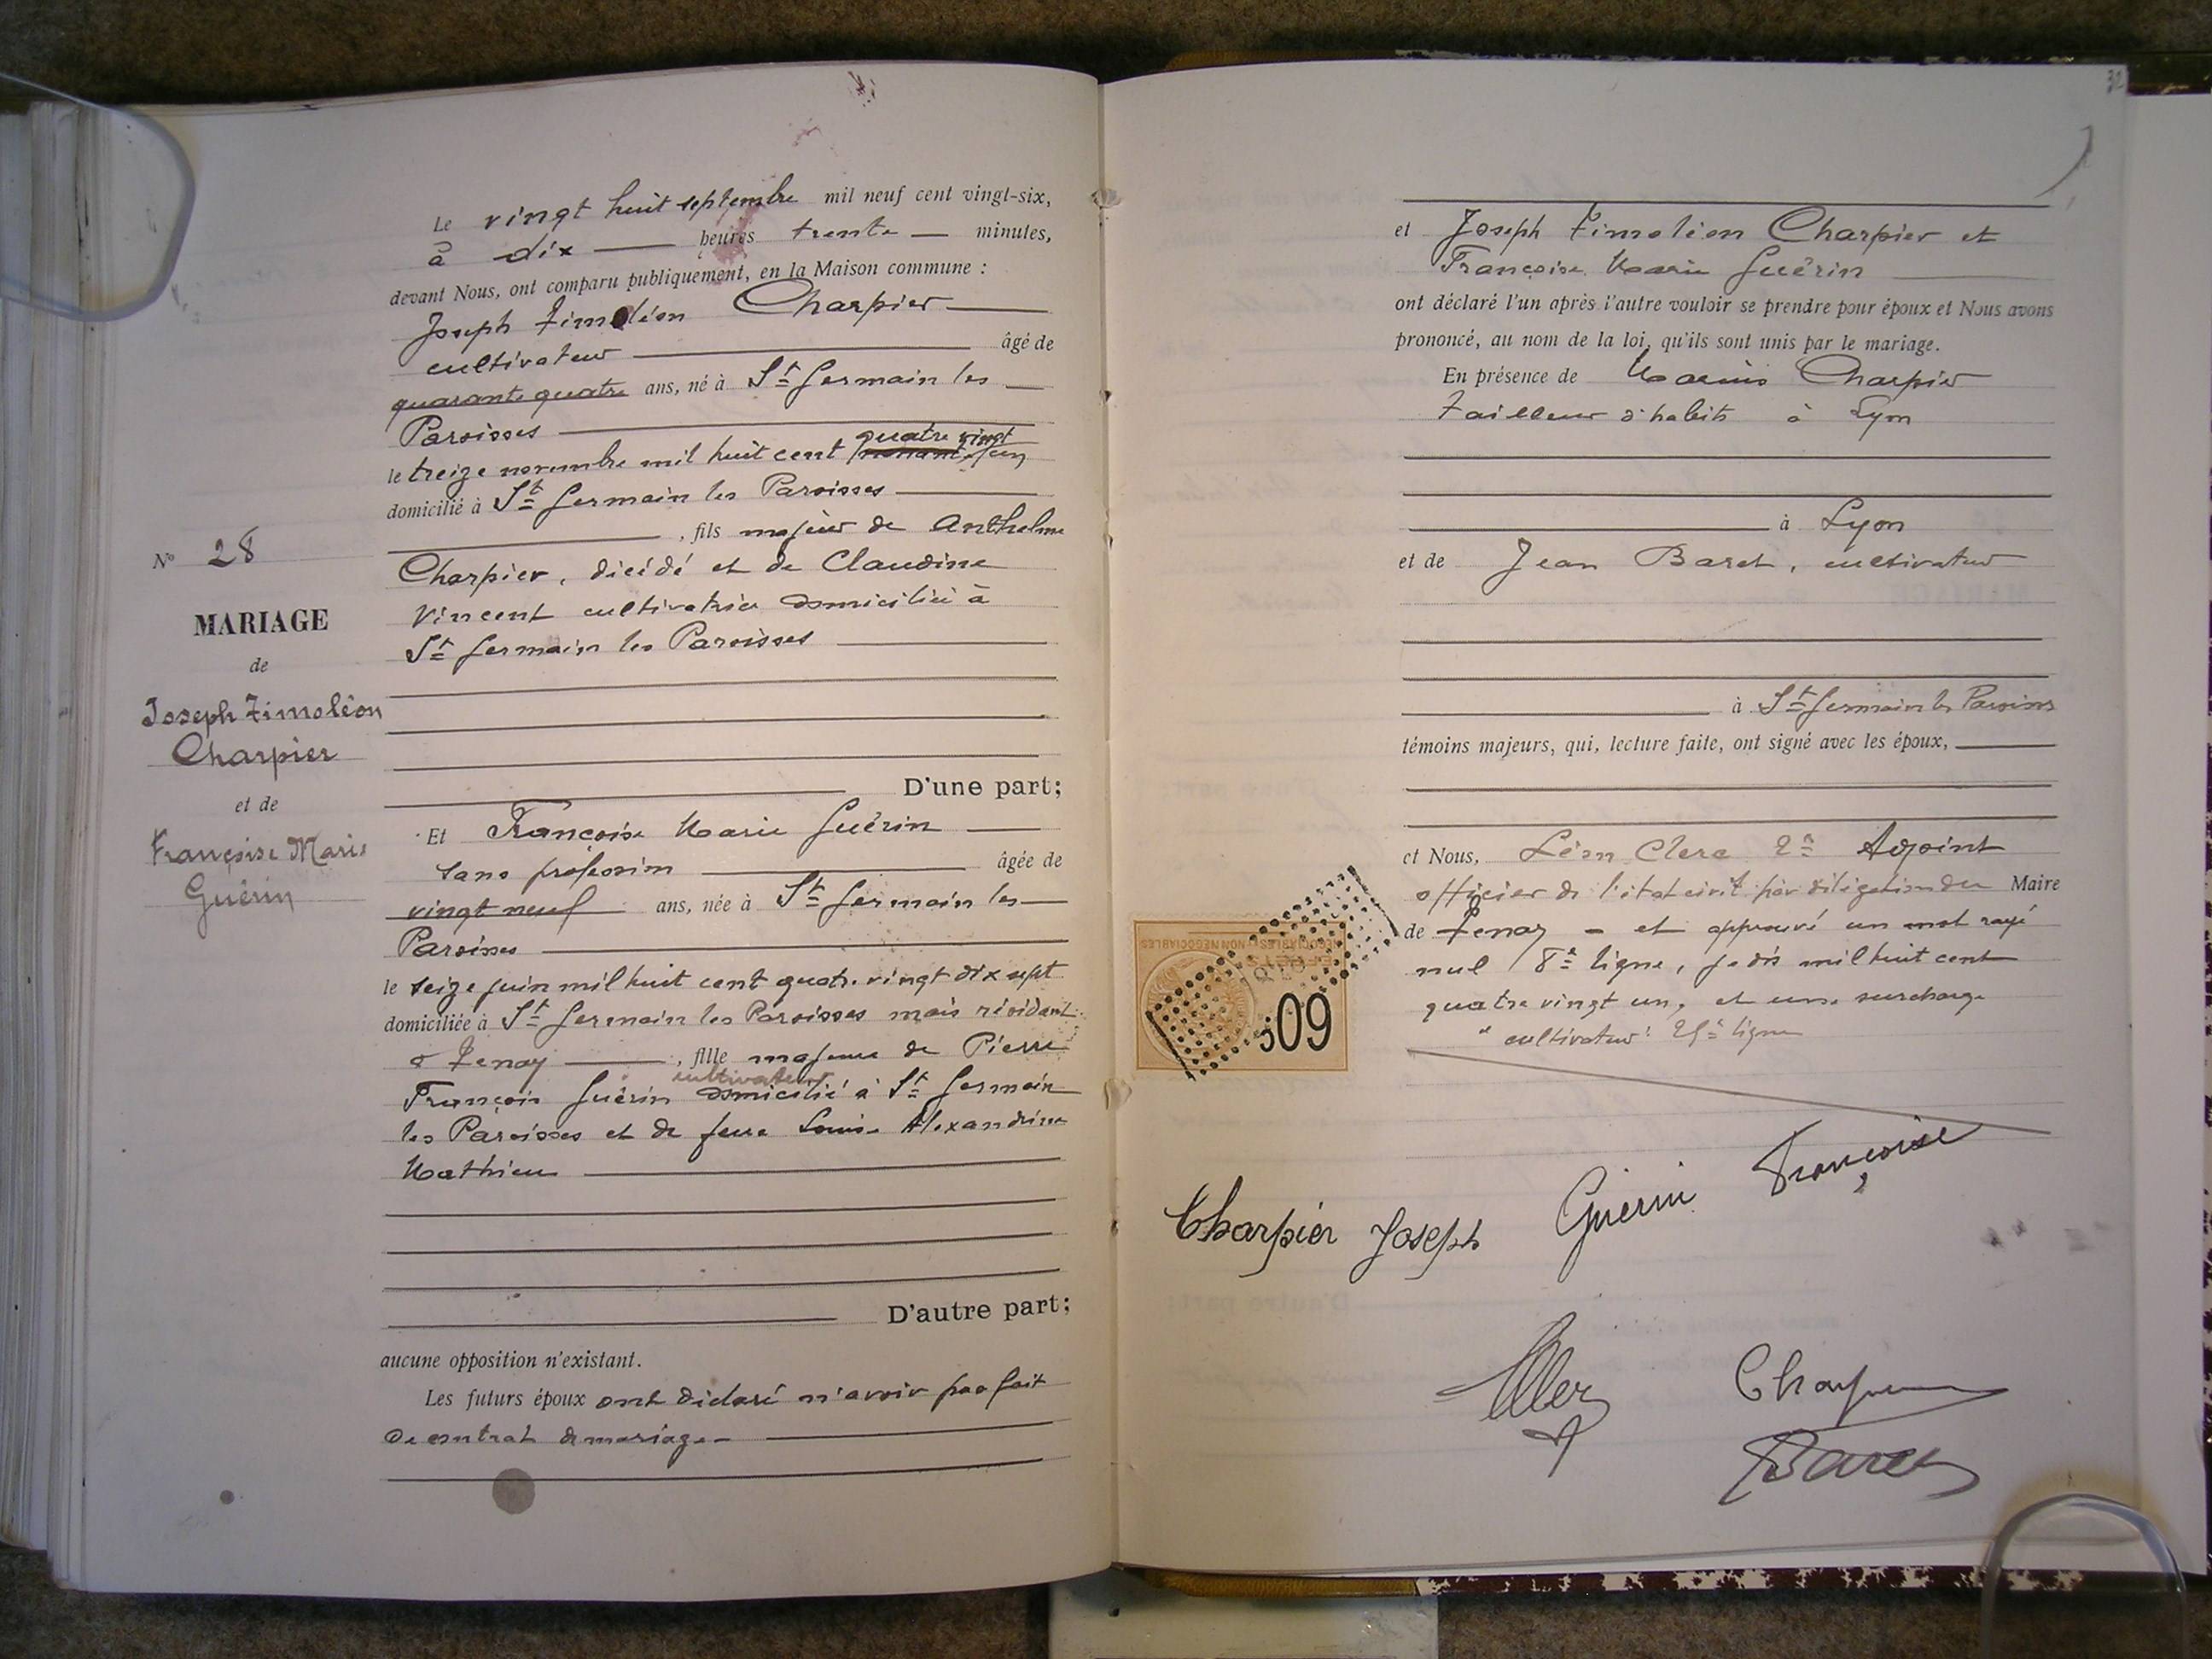 Le vingt huit septembre mil neuf cent vingt-six,
à dix heures trente minutes,
devant Nous, ont comparu publiquement, en la Maison commune :
Joseph Timoléon Charpier
cultivateur âgé de
quarante quatre ans, né à St Germain les
Paroisses
quatre vingt
le treize novembre mil huit cent un
domicilié à St Germain les Paroisses
, fils majeur de Anthelme
Charpier, décédé et de Claudine
Vincent cultivatrice domiciliée à
St Germain les Paroisses
D'une part;
N° 28
MARIAGE
de
Joseph Timoléon
Charpier
et de
Françoise Marie
Guérin
Et Françoise Marie Guérin
sans profession âgée de
vingt neuf ans, née à St Germain les
Paroisses
le seize juin mil huit cent quatre vingt dix sept
domiciliée à St Germain les Paroisses mais résidant
à Tenay , fille majeure de Pierre
cultivateur
François Guérin domicilié à St Germain
les Paroisses et de feue Louise Alexandrine
Mathieu
D'autre part;
aucune opposition n'existant.
Les futurs époux ont déclaré n'avoir pas fait
de contrat de mariage
32
et Joseph Timoléon Charpier et
Françoise Marie Guérin
ont déclaré l'un après l'autre vouloir se prendre pour époux et Nous avons
prononcé, au nom de la loi, qu'ils sont unis par le mariage.
En présence de Marius Charpier
tailleur d'habits à Lyon
à Lyon
et de Jean Baret, cultivateur
à St Germain les Paroisses
témoins majeurs, qui, lecture faite, ont signé avec les époux,
et Nous, Léon Clerc 2e Adjoint
officier de l'état civil par délégation du Maire
de Tenay - et approuvé un mot rayé
nul 8e ligne, je dis mil huit cent
quatre vingt un, et une surcharge
"cultivateur"
ligne
NON NÉGOCIABLES
609
Charpier Joseph
Guerin Françoise
Charpier
Baret